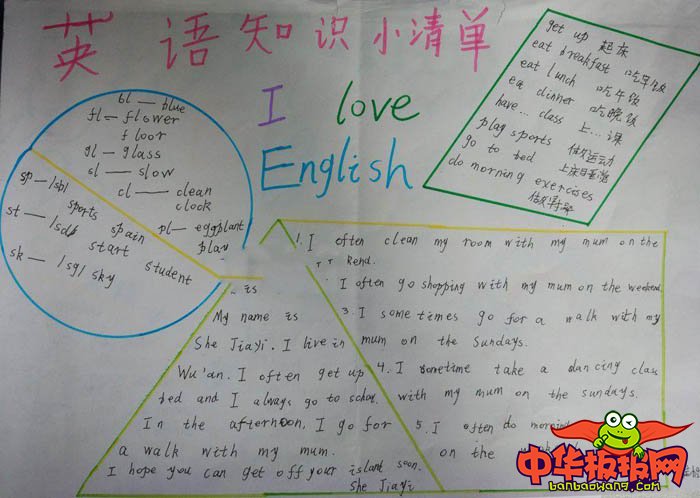 英语知识小清单
I love
English
bl — blue
fl — flower
floor
gl — glass
sl — slow
cl — clean
clock
pl — eggplant
play
sp — /sb/
sports
spain
st — /sd/
start
student
sk — /sg/ sky
get up 起床
eat breakfast 吃早饭
eat lunch 吃午饭
ea dinner 吃晚饭
have... class 上...课
plag sports 做运动
go to bed 上床睡觉
do morning exercises
做早操
is
My name is
She Jiayi. I live in
Wu'an. I often get up
bed and I always go to school.
In the afternoon, I go for
a walk with my mum.
I hope you can get off your island soon.
She Jiayi
1. I often clean my room with my mum on the
I often go shopping with my mum on the weekend.
3. I some times go for a walk with my
mum on the Sundays.
4. I sometime take a dancing clas
with my mum on the sundays.
5. I often do morning
on the
中华板报网
banbaowang.com